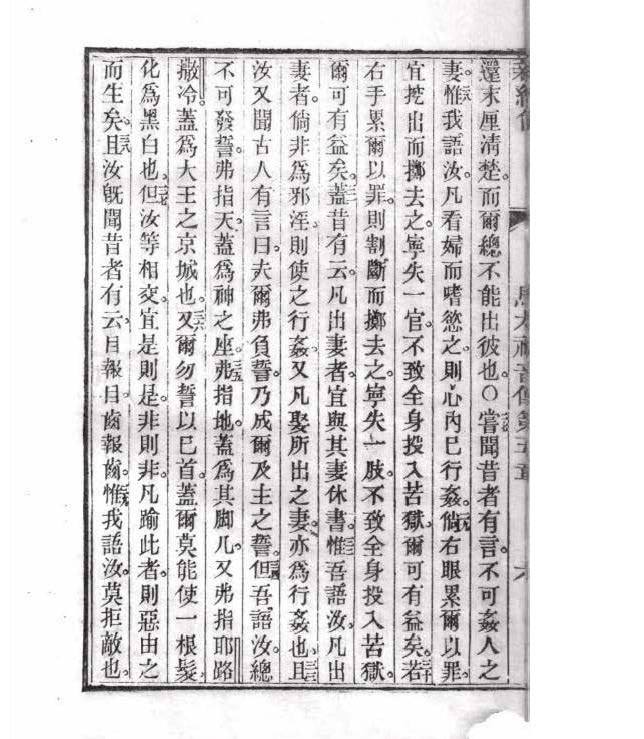 馬太福音傳第五章 六
還末厘清楚。而爾總不能出彼也。○嘗聞昔者有言。不可姦人之
妻。惟我語汝。凡看婦而嗜慾之。則心內已行姦。倘右眼累爾以罪。
宜挖出而擲去之。寧失一官。不致全身投入苦獄。爾可有益矣。若
右手累爾以罪。則割斷而擲去之。寧失一肢。不致全身投入苦獄。
爾可有益矣。蓋昔有云。凡出妻者。宜與其妻休書。惟吾語汝。凡出
妻者。倘非為邪淫。則使之行姦。又凡娶所出之妻。亦為行姦也。且
汝又聞古人有言曰。夫爾弗負誓。乃成爾及主之誓。但吾語汝。總
不可發誓。弗指天。蓋為神之座。弗指地。蓋為其脚几。又弗指耶路
撒冷。蓋為大王之京城也。又爾勿誓以己首。蓋爾莫能使一根髮
化為黑白也。但汝等相交。宜是則是。非則非。凡踰此者。則惡由之
而生矣。且汝既聞昔者有云。目報目。齒報齒。惟我語汝。莫拒敵也。